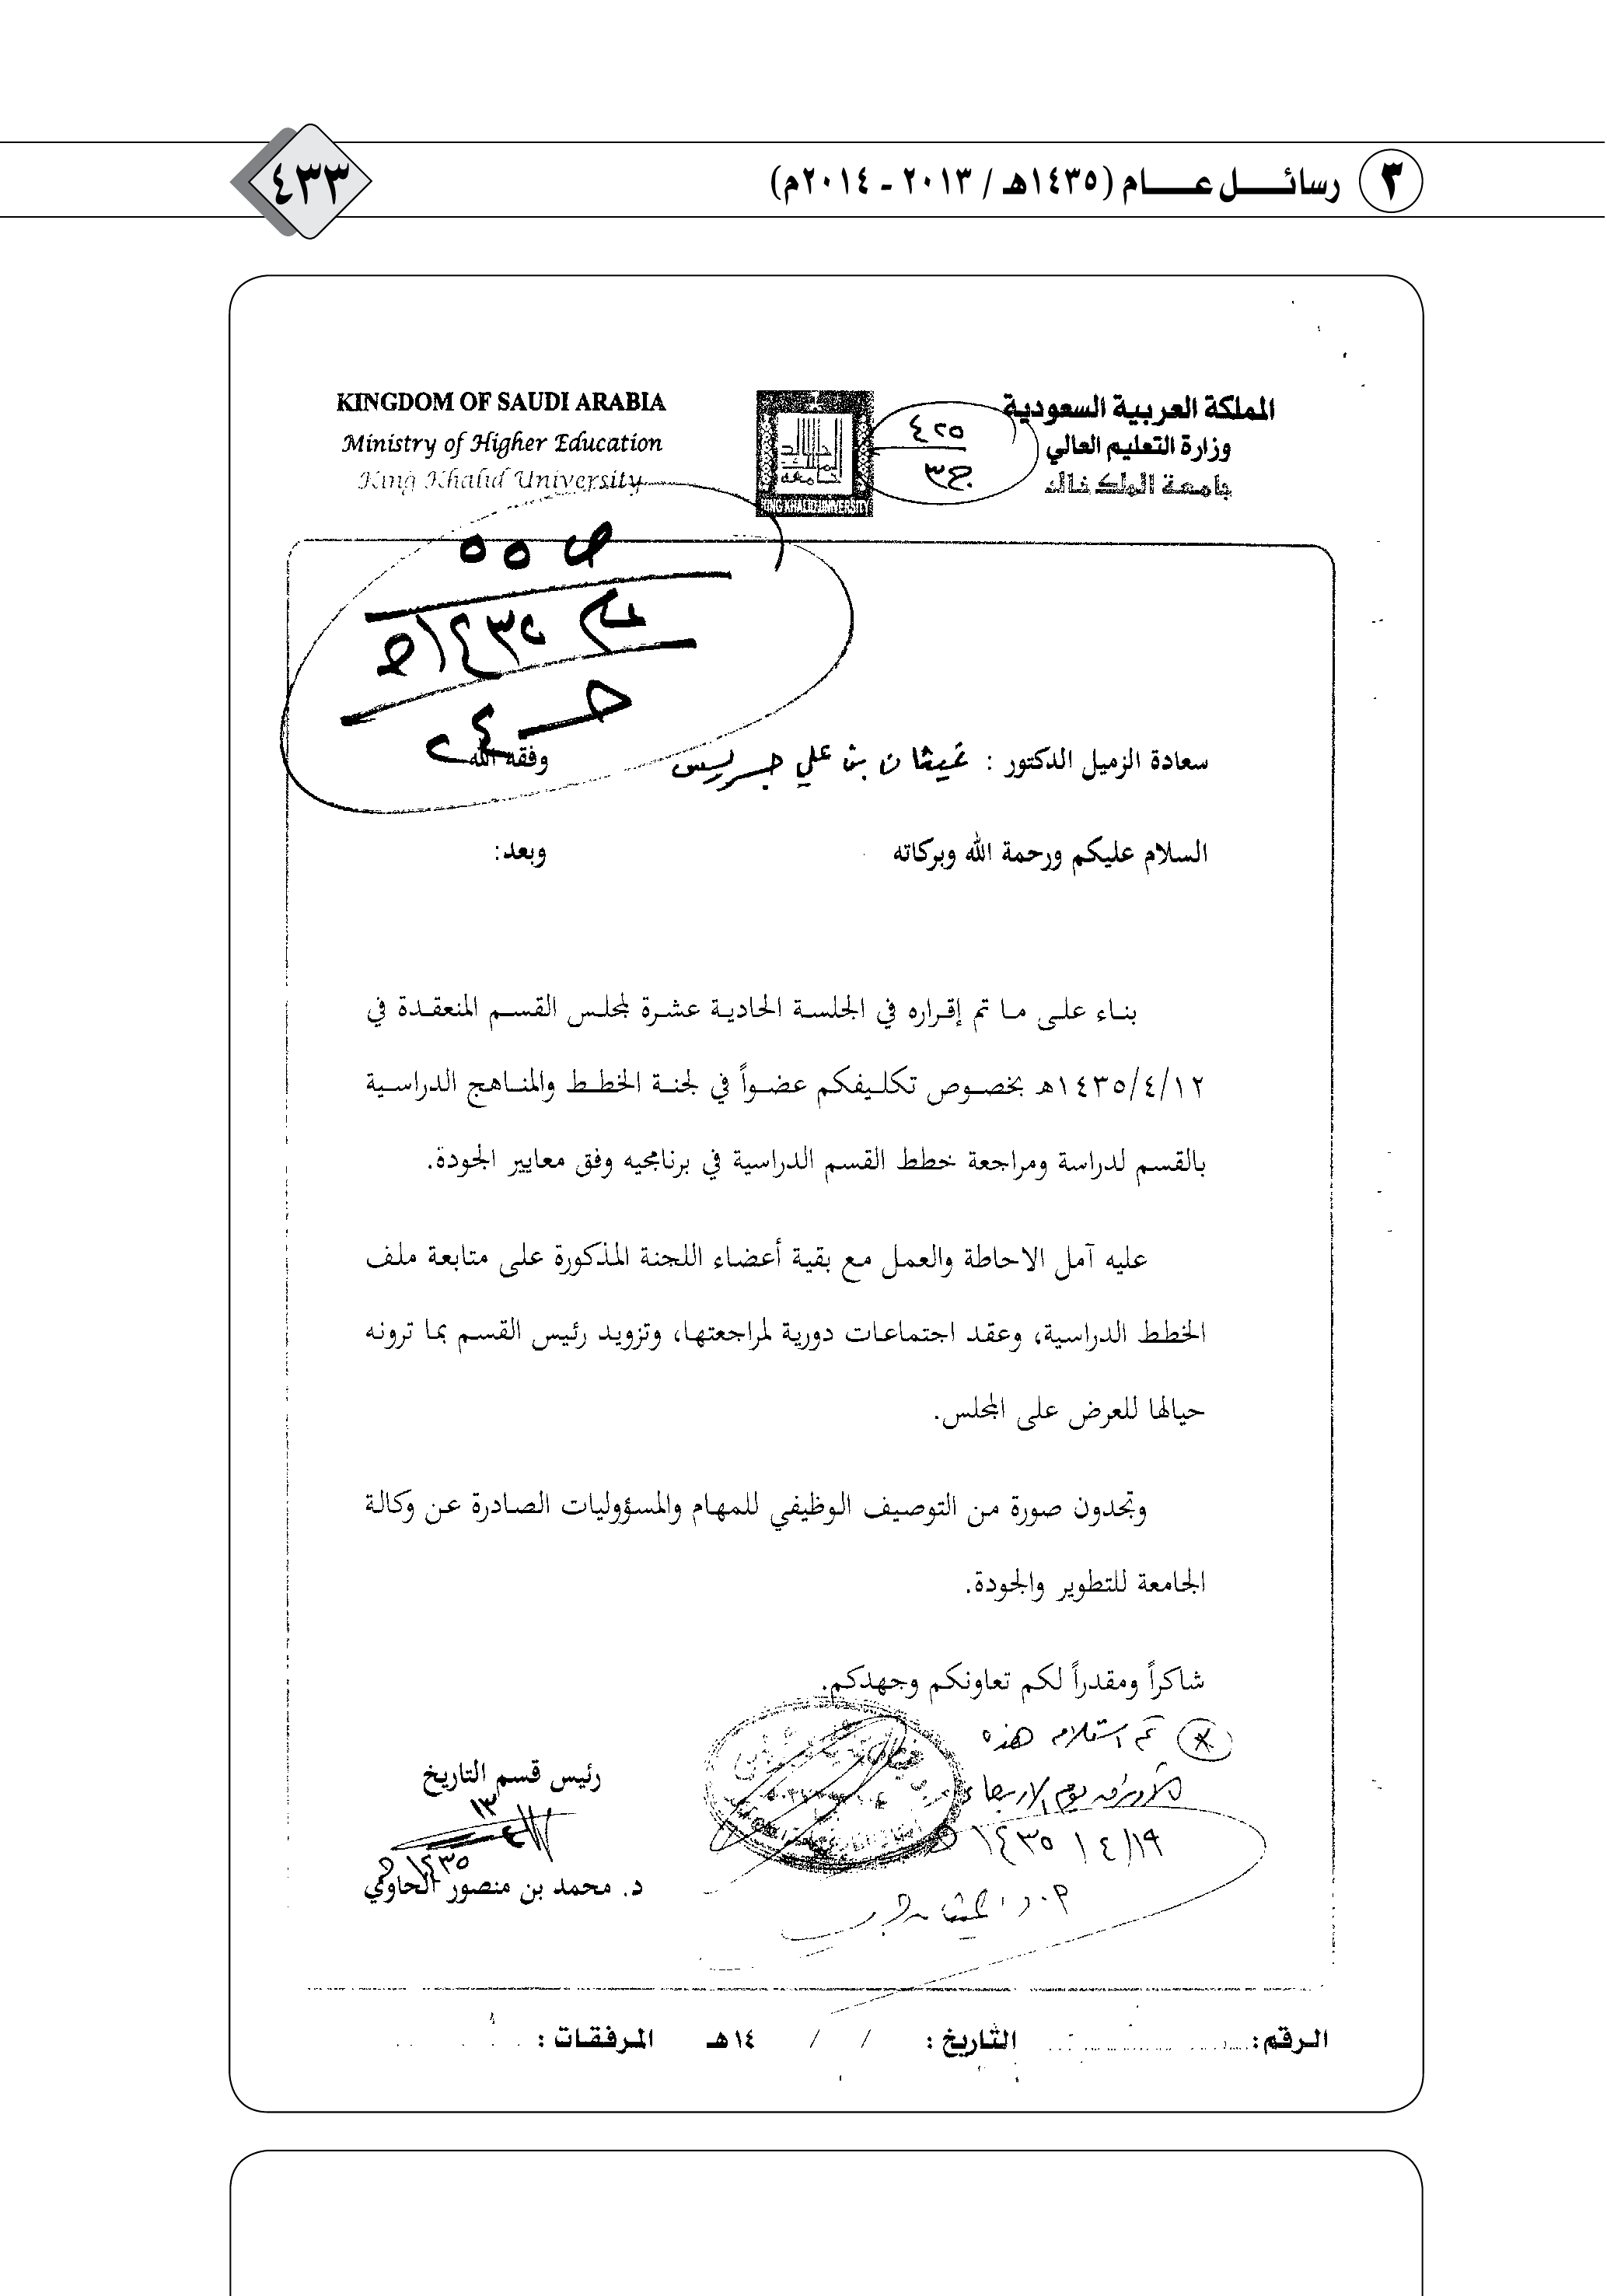 ٣ رسائل عام (١٤٣٥هـ / ٢٠١٣ - ٢٠١٤م)
٤٣٣
المملكة العربية السعودية
وزارة التعليم العالي
جامعة الملك خالد
KINGDOM OF SAUDI ARABIA
Ministry of Higher Education
King Khalid University
KING KHALID UNIVERSITY
٤٢٥
ج٣
ص ٥٥
١٤٣٥هـ
ج ٢٤
سعادة الزميل الدكتور : غيثان بن علي جريس وفقه الله
السلام عليكم ورحمة الله وبركاته وبعد:
بناء على ما تم إقراره في الجلسة الحادية عشرة لمجلس القسم المنعقدة في
١٤٣٥/٤/١٢هـ بخصوص تكليفكم عضواً في لجنة الخطط والمناهج الدراسية
بالقسم لدراسة ومراجعة خطط القسم الدراسية في برنامجيه وفق معايير الجودة.
عليه آمل الاحاطة والعمل مع بقية أعضاء اللجنة المذكورة على متابعة ملف
الخطط الدراسية، وعقد اجتماعات دورية لمراجعتها، وتزويد رئيس القسم بما ترونه
حيالها للعرض على المجلس.
وتجدون صورة من التوصيف الوظيفي للمهام والمسؤوليات الصادرة عن وكالة
الجامعة للتطوير والجودة.
شاكراً ومقدراً لكم تعاونكم وجهدكم.
تم استلام هذه
الأوراق يوم الاربعاء
١٩/٤/١٤٣٥هـ
رئيس قسم التاريخ
١٣
١٤٣٥هـ
د. محمد بن منصور الحاوي
الرقم: التاريخ: / / ١٤هـ المرفقات: